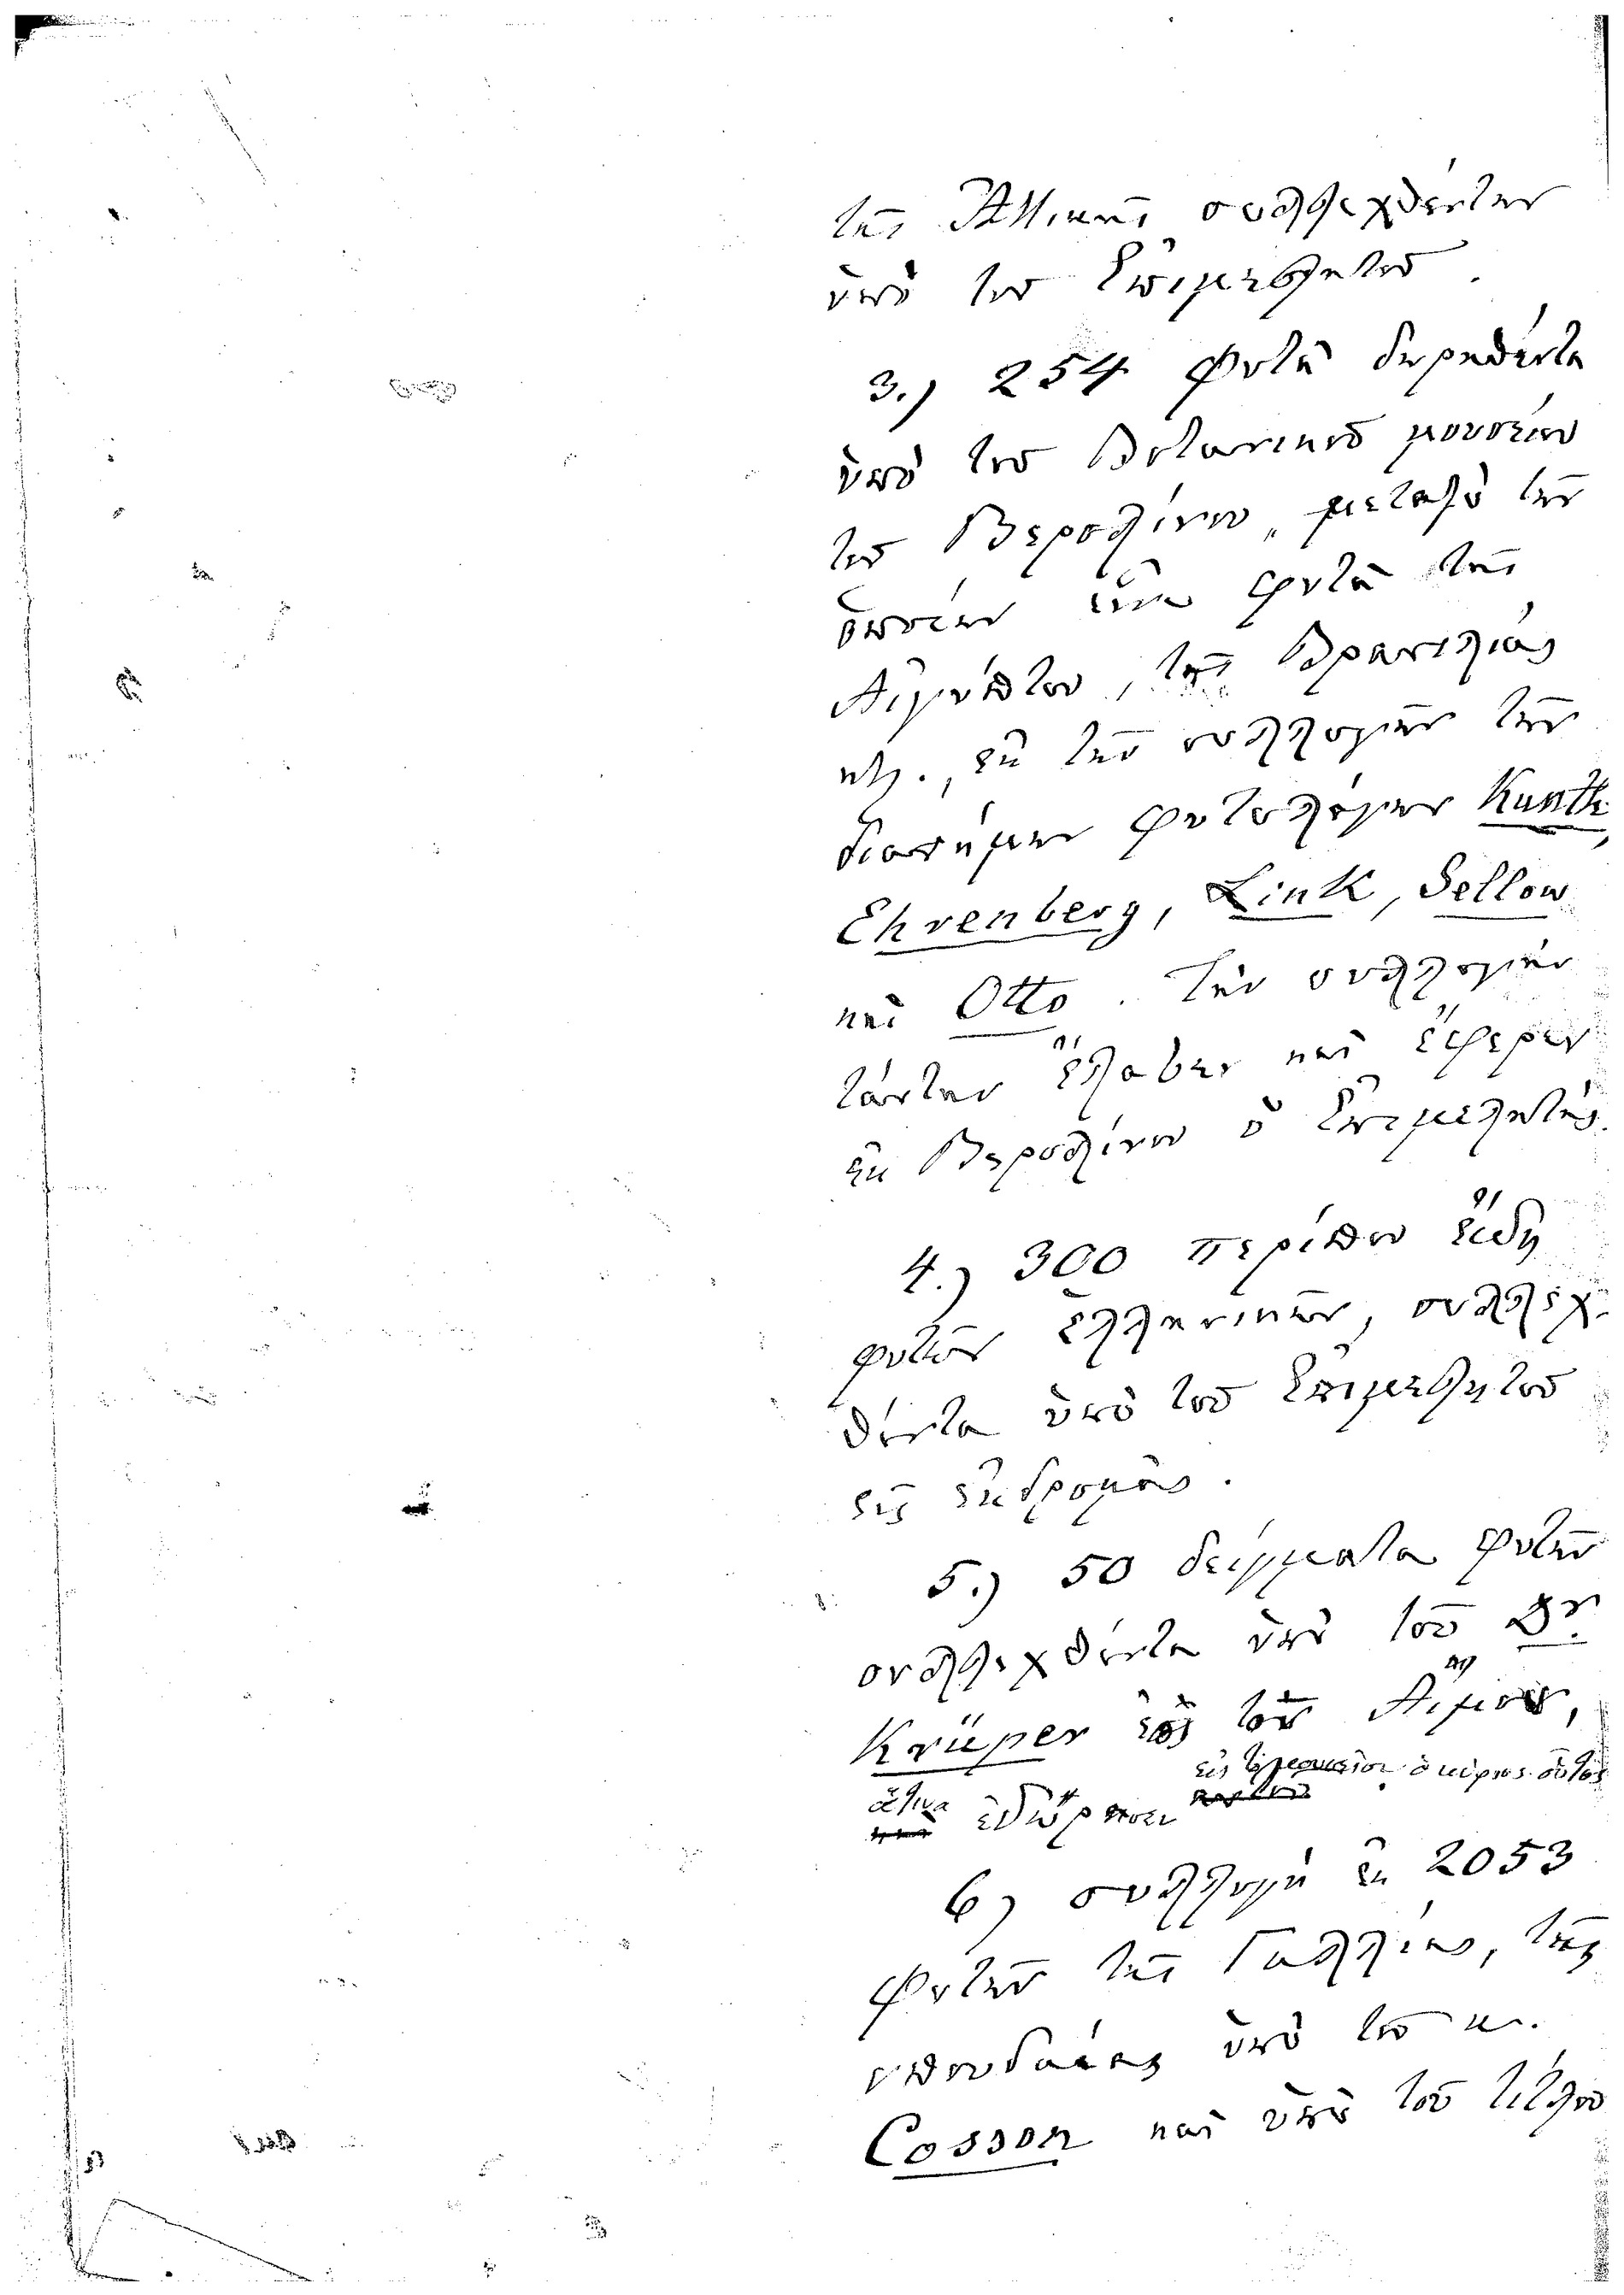 τῆς Ἀττικῆς συλλεχθέντων
ὑπὸ τοῦ Ἐπιμελητοῦ.
3.) 254 φυτὰ δωρηθέντα
ὑπὸ τοῦ Βοτανικοῦ μουσείου
τοῦ Βερολίνου, μεταξὺ τῶν
ὁποίων εἶνε φυτὰ τῆς
Αἰγύπτου, τῆς Βρασιλίας
κτλ., ἐκ τῶν συλλογῶν τῶν
διασήμων φυτολόγων Kunth,
Ehrenberg, Link, Sellow
καὶ Otto. Τὴν συλλογὴν
ταύτην ἔλαβεν καὶ ἔφερεν
ἐκ Βερολίνου ὁ Ἐπιμελητής.
4.) 300 περίπου εἴδη
φυτῶν ἑλληνικῶν, συλλεχ-
θέντα ὑπὸ τοῦ Ἐπιμελητοῦ
εἰς ἐκδρομάς.
5.) 50 δείγματα φυτῶν
συλλεχθέντα ὑπὸ τοῦ Dr.
Krüper εἰς τὸν Αἷμον,
εἰς τὸ μουσεῖον ὁ κύριος οὗτος
ἅτινα ἐδώρησεν
6) συλλογὴ ἐκ 2053
φυτῶν τῆς Γαλλίας, τῆς
σπουδαίας ὑπὸ τοῦ κ.
Cosson καὶ ὑπὸ τοῦ τίτλου